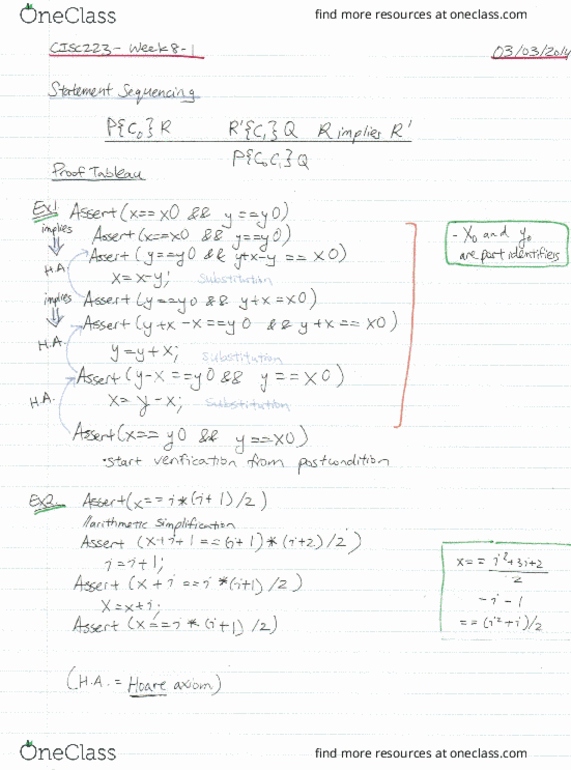 OneClass
find more resources at oneclass.com
CISC223 - Week 8-1
03/03/2014
Statement Sequencing
P{C₀}R R'{C₁}Q R implies R'
P{C₀C₁}Q
Proof Tableau
Ex1 Assert (x==x0 && y==y0)
implies
Assert (x==x0 && y==y0)
Assert (y==y0 && y+x-y==x0)
H.A.
x=x-y; Substitution
implies Assert (y==y0 && y+x=x0)
Assert (y+x-x==y0 && y+x==x0)
H.A.
y=y+x; Substitution
Assert (y-x==y0 && y==x0)
H.A.
x=y-x; Substitution
Assert (x==y0 && y==x0)
·start verification from postcondition
- x₀ and y₀
are part identifiers
Ex2 Assert (x==i*(i+1)/2)
//arithmetic simplification
Assert (x+i+1==(i+1)*(i+2)/2)
i=i+1;
Assert (x+i==i*(i+1)/2)
x=x+i;
Assert (x==i*(i+1)/2)
x== i²+3i+2
2
-i-1
==(i²+i)/2
(H.A. = Hoare axiom)
OneClass
find more resources at oneclass.com